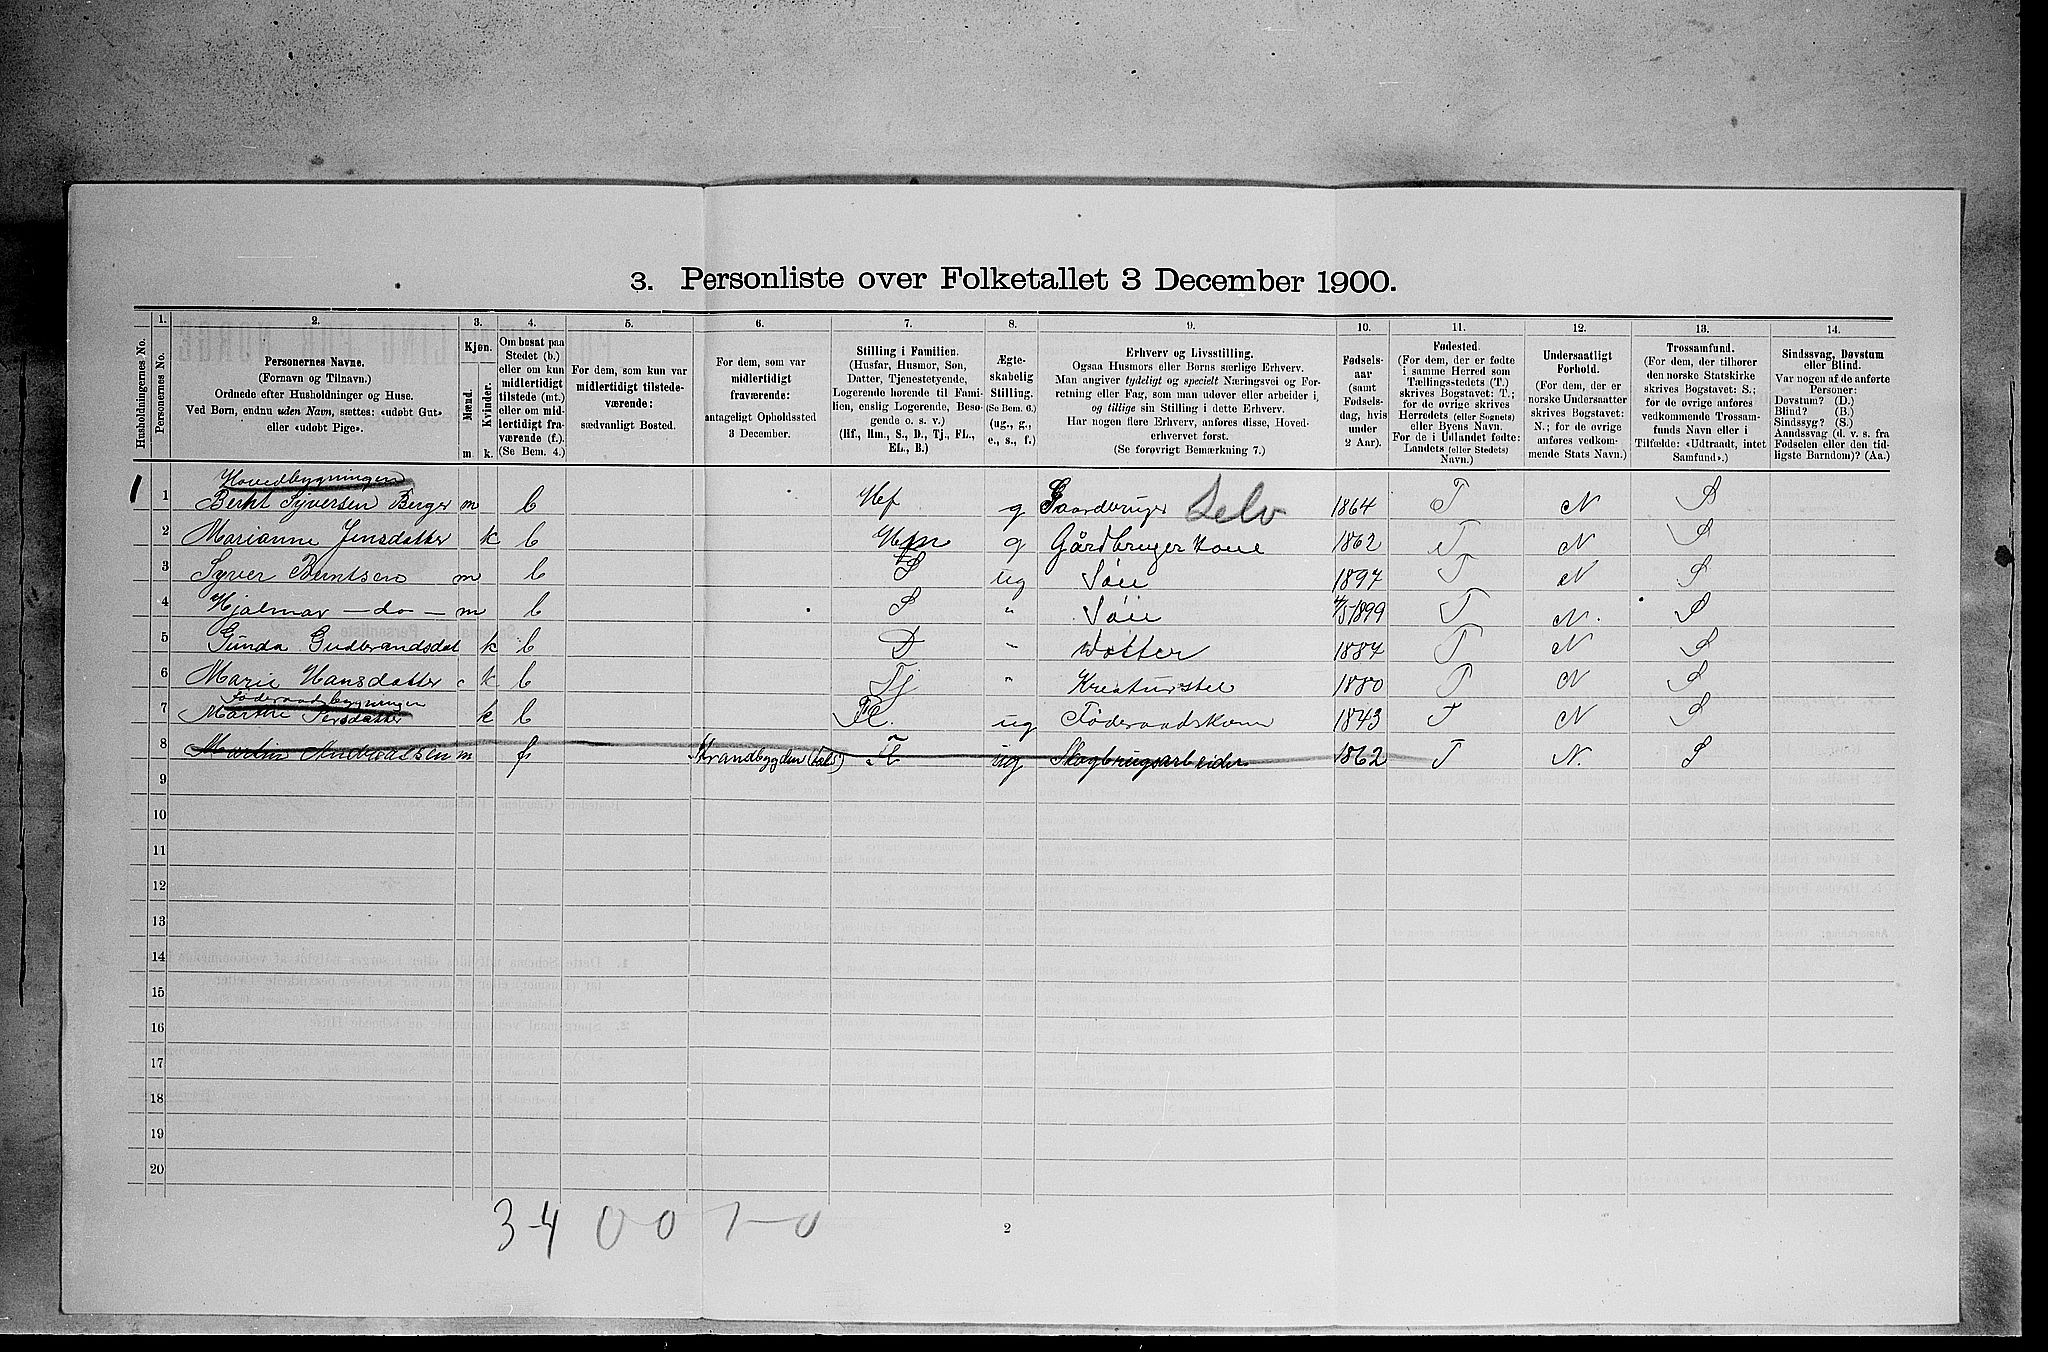 3. Personliste over Folketallet 3 December 1900.
1. 2. 3. 4. 5. 6. 7. 8. 9. 10. 11. 12. 13. 14.
Husholdningernes No.
Personernes No.
Personernes Navne.
(Fornavn og Tilnavn.)
Ordnede efter Husholdninger og Huse.
Ved Børn, endnu uden Navn, sættes: «udøbt Gut»
eller «udøbt Pige».
Kjøn.
Mænd.
Kvinder.
m. k.
Om bosat paa
Stedet (b.)
eller om kun
midlertidigt
tilstede (mt.)
eller om mid-
lertidigt fra-
værende (f.).
(Se Bem. 4.)
For dem, som kun var
midlertidigt tilstede-
værende:
sædvanligt Bosted.
For dem, som var
midlertidigt
fraværende:
antageligt Opholdssted
3 December.
Stilling i Familien.
(Husfar, Husmor, Søn,
Datter, Tjenestetyende,
Logerende hørende til Fami-
lien, enslig Logerende, Besø-
gende o. s. v.)
(Hf., Hm., S., D., Tj., FL.,
EL., B.)
Ægte-
skabelig
Stilling.
(Se Bem. 6.)
(ug., g.,
e., s., f.)
Erhverv og Livsstilling.
Ogsaa Husmors eller Børns særlige Erhverv.
Man angiver tydeligt og specielt Næringsvei og For-
retning eller Fag, som man udøver eller arbeider i,
og tillige sin Stilling i dette Erhverv.
Har nogen flere Erhverv, anføres disse, Hoved-
erhvervet først.
(Se forøvrigt Bemærkning 7.)
Fødsels-
aar
(samt
Fødsels-
dag, hvis
under
2 Aar).
Fødested.
(For dem, der er fødte
i samme Herred som
Tællings-stedets (T.)
skrives Bogstavet: T.;
for de øvrige skrives
Herredets (eller Sognets)
eller Byens Navn.
For de i Udlandet fødte:
Landets (eller Stedets)
Navn.)
Undersaatligt
Forhold.
(For dem, der er
norske Undersaatter
skrives Bogstavet:
N.; for de øvrige
anføres vedkom-
mende Stats Navn.)
Trossamfund.
(For dem, der tilhører
den norske Statskirke
skrives Bogstavet: S.;
for de øvrige anføres
vedkommende Trossam-
funds Navn eller i
Tilfælde: «Udtraadt, intet
Samfund».)
Sindssvag, Døvstum
eller Blind.
Var nogen af de anførte
Personer:
Døvstum? (D.)
Blind? (B.)
Sindssyg? (S.)
Aandssvag (d. v. s. fra
Fødselen eller den tid-
ligste Barndom)? (Aa.)
Hovedbygningen
1 1 Bernt Syversen Berger m b Hf g Gaardbruger Selv 1864 T N S
2 Marianne Jensdatter k b Hm g Gårdbruger Kone 1862 T N S
3 Syver Berntsen m b S ug Søn 1897 T N S
4 Hjalmar — do — m b S " Søn 4/5 1899 T N. S
5 Gunda Gudbrandsdat k b D " Datter 1887 T N S
6 Marie Hansdatter k b Tj " Kreaturstel 1880 T N S
Föderaadsbygningen
7 Marthe Persdatter k b FL. ug Föderaadskone 1843 T N S
8 Martin m f Strandbygden ug Skogbrugsarbeider 1862 T N. S
9
10
11
12
13
14
15
16
17
18
19
20
3-4 0 0 1-0
2